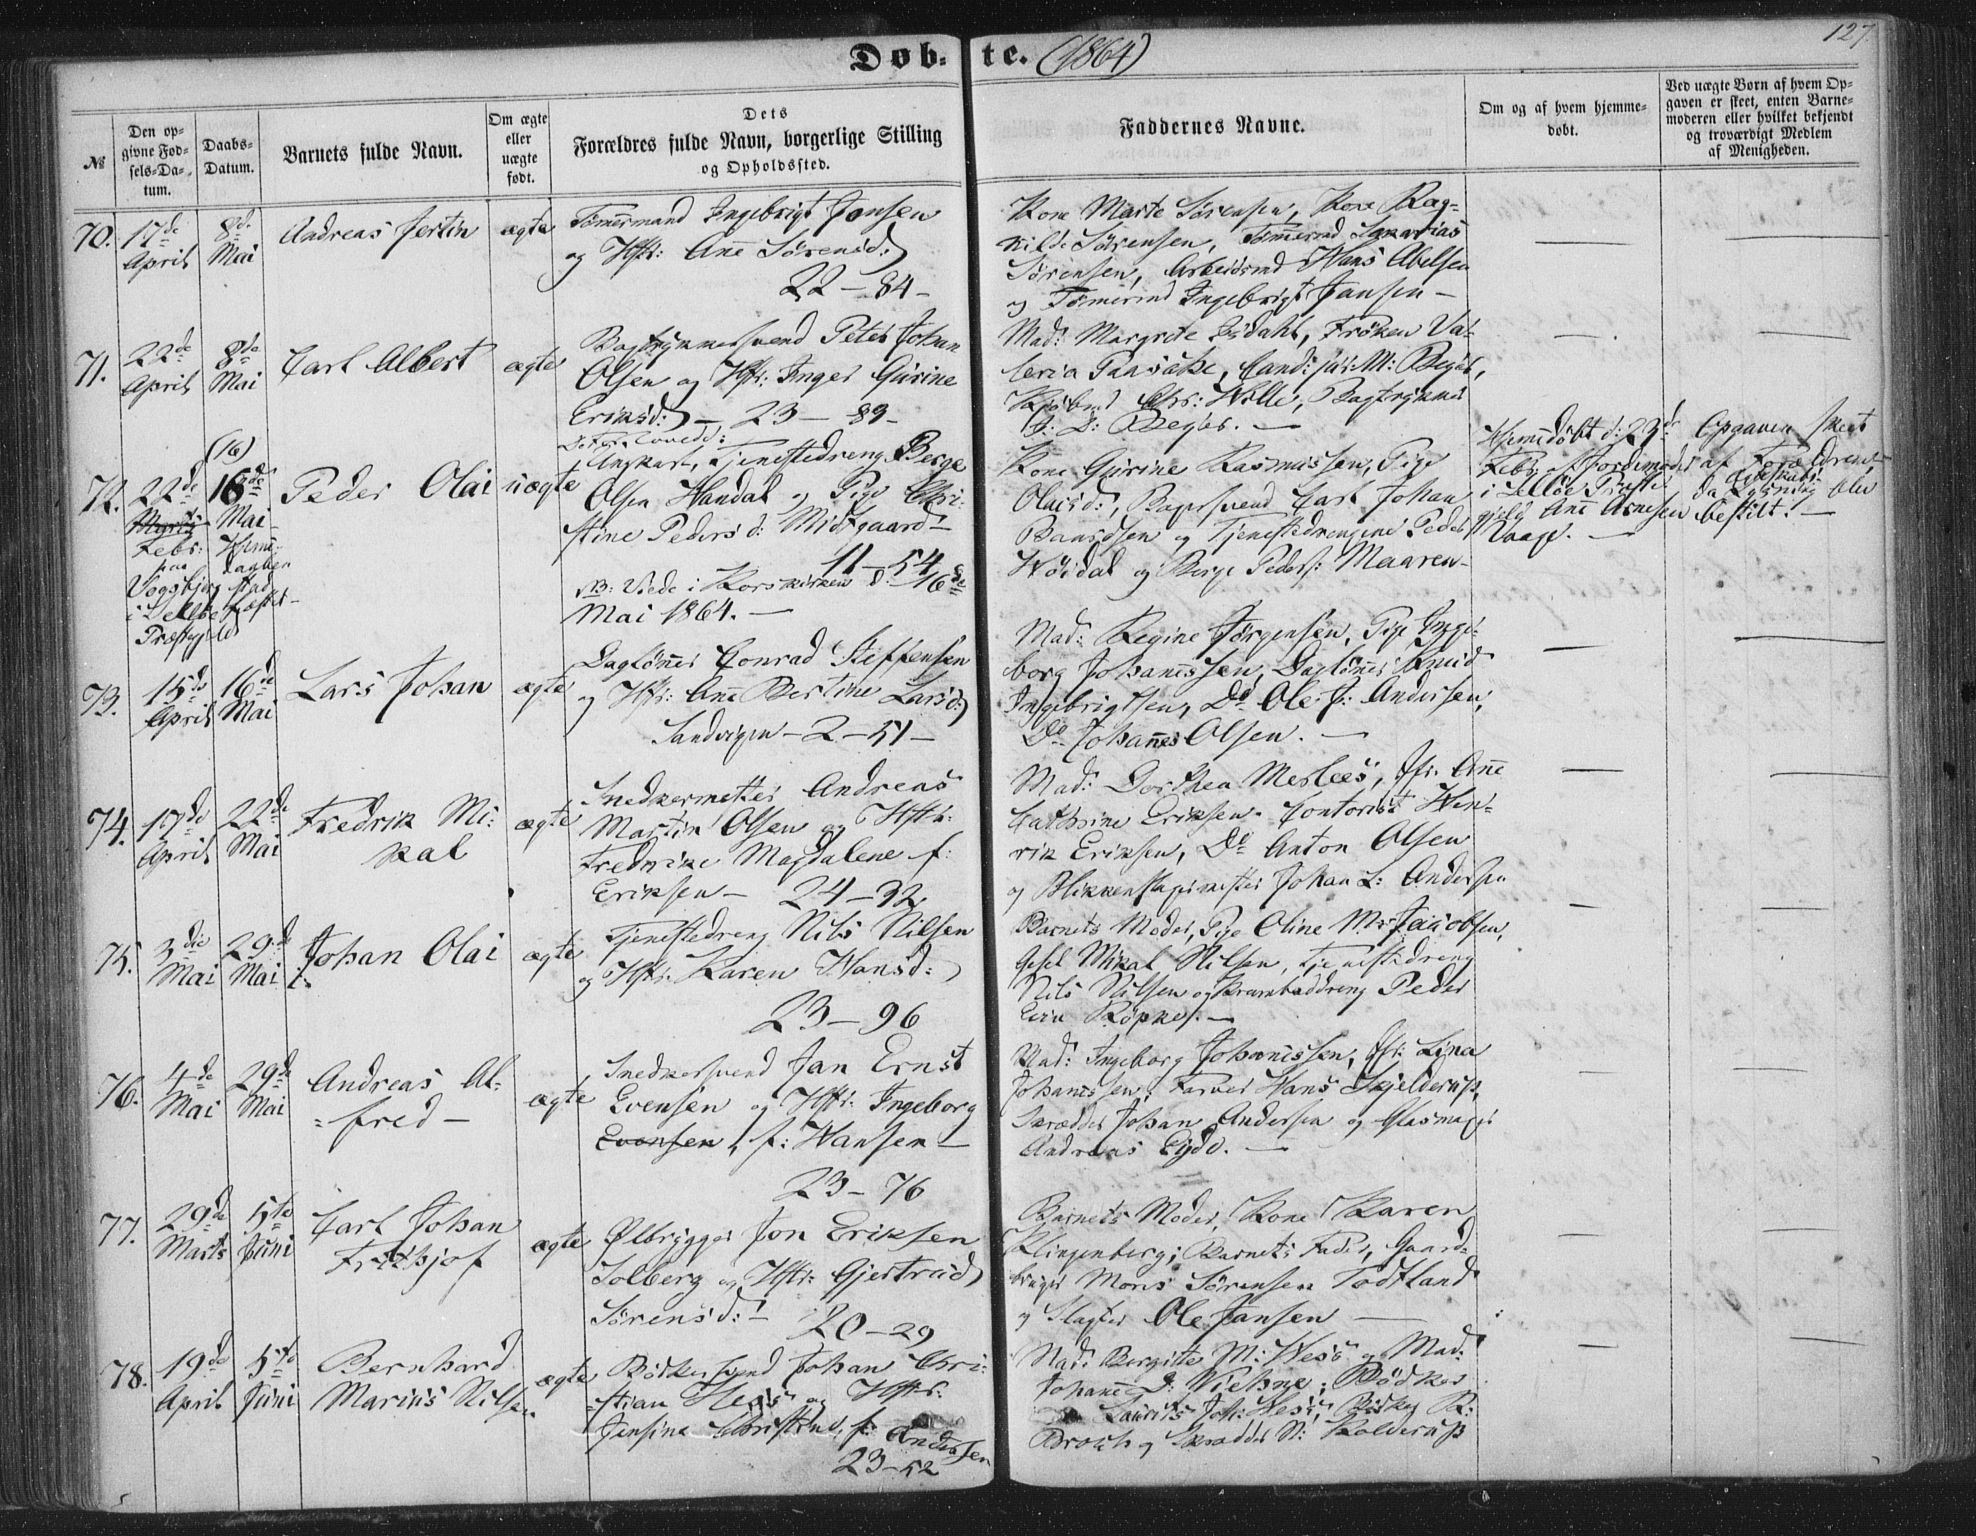 127.
Døb-te. (1864)
№
Den op-
givne Fød-
sels-Da-
tum.
Daabs-
Datum.
Barnets fulde Navn.
Om ægte
eller
uægte
født.
Dets
Forældres fulde Navn, borgerlige Stilling
og Opholdssted.
Faddernes Navne.
Om og af hvem hjemme-
døbt.
Ved uægte Børn af hvem Op-
gaven er skeet, enten Barne-
moderen eller hvilket bekjendt
og troværdigt Medlem
af Menigheden.
70.
17de
April
8de
Mai
Andreas Jertin
ægte
Tømmermand Ingebrigt Jansen
og Hstr: Ane Sørensd:
22 - 84 -
Kone Marte Sørensen, Kone Rag-
nilde Sørensen, Tømermd
Sørensen, Arbeidsmd Hans Abelsen
og Tømermd Ingebrigt Jansen -
71.
22de
April
8de
Mai
Carl Albert
ægte
Bogtrykkersvend Peter Johan
Olsen og Hstr: Inger Gurine
Eriksd: - 23 - 89 -
Mad: Margrete Frøken Va-
leria Cand: jur: M: Beyer,
Kjøbmd Chr: Wille, Bogtrykker
F: D: Beyer. -
72.
22de
Febr:
paa
i
Præstegjeld
(16)
16de
Mai
Peder Olai
uægte
Ungkarl, Tjenestedreng Berge
Olsen Handal og Pige Chri-
stine Pedersd: Midtgaard -
11 - 54
NB: Viede i Korskirken d: 16de
Mai 1864. -
Kone Gurine Rasmussen, Pige
Olaisd:, Bagersvend Carl Johan
og Tjenestedrengene Peder
og Berge Peders: Maaren -
Hjemdøbt d: 23d
Feby af Jordemoder
i Præste-
gjeld Ane Arnesen
Vaage. -
Opgaven skeet
af Forældrene
da
bestilt. -
73.
15de
April
16de
Mai
Lars Johan
ægte
Dagløner Conrad Steffensen
og Hstr: Ane Bertine Larsd:
Sandvigen - 2 - 51 -
Mad: Regine Jørgensen, Pige Inge-
borg Johanessen, Dagløner Knud
Ingebrigtsen, Do Ole J: Andersen,
Do Johannes Olsen. -
74.
17de
April
22de
Mai
Fredrik Mi-
kal
ægte
Snedkermester Andreas
Martin Olsen og Hstr:
Fredrike Magdalene f:
Eriksen - 24 - 32
Mad: Dorthea Merlees, Jfr: Ane
Cathrine Eriksen, Contorist Hen-
rik Eriksen, Do Anton Olsen
og Blikkenslagermester Johan L: Andersen
75.
3die
Mai
29de
Mai
Johan Olai
ægte
Tjenestedreng Nils Nilsen
og Hstr: Karen Hansd:
23 - 96
Barnets Moder, Pige Oline M: Jacobsen,
Gesel Mikal Nilsen, Tjenestedreng
Nils Nilsen og Krambaddreng Peder
Røpke. -
76.
4de
Mai
29de
Mai
Andreas Al-
fred -
ægte
Snedkersvend Jan Ernst
Evensen og Hstr: Ingeborg
Evensen, f: Hansen -
23 - 76
Mad: Ingeborg Johanessen, Jfr: Lina
Johanessen, Farver Hans Skjelderup,
Skrædder Johan Andersen og Glasmager
Andreas Eyde. -
77.
29de
Marts
5te
Juni
Carl Johan
Frithjof
ægte
Ølbrygger Jon Eriksen
Solberg og Hstr: Gjertrud
Sørensd: -
20 - 29
Barnets Moder, Kone Karen
Klingenberg; Barnets Fader, Gaard-
bruger Mons Sørensen Todtland
og Slagter Ole Jansen -
78.
19de
April
5te
Juni
Bernhard
Marius Nilsen
ægte
Bødkersvend Johan Chri-
stian Hess og Hstr:
Jensine Christine, f: Andersen
23 - 52
Mad: Bergitte M: Hess og Mad:
Johane D: Viehne; Bødker
Laurits Joh: Hess, Bødker R:
Broch og Skrædder N: Kolderup